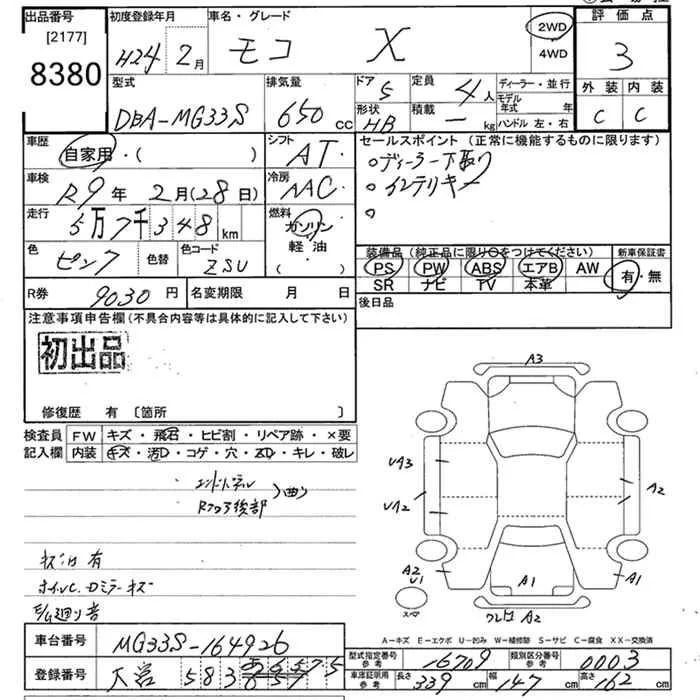 出品番号
[2177]
8380
初度登録年月
H24 2月
車名・グレード
モコ X
2WD
4WD
評価点
3
型式
DBA-MG33S
排気量
650 cc
ドア 5
定員 4人
形状 HB
積載 - kg
ディーラー・並行
モデル年式 年
ハンドル 左・右
外装 内装
C C
車歴
自家用・( )
シフト AT
セールスポイント (正常に機能するものに限ります)
○ディーラー下取り
○インテリキー
○
車検
R9年 2月(28日)
冷房 AAC
走行
5万7千348km
燃料
ガソリン
軽油
( ・ )
色 ピンク 色替
色コード ZSU
装備品 (純正品に限り○をつけてください)
PS PW ABS エアB AW
SR ナビ TV 本革
新車保証書
有・無
R券 9030円
名変期限 月 日
後日品
注意事項申告欄(不具合内容等は具体的に記入して下さい)
初出品
修復歴 有 〔箇所 〕
検査員 FW キズ・飛石・ヒビ割・リペア跡・×要
記入欄 内装 キズ・汚D・コゲ・穴・ZD・キレ・破レ
Rフロア後部
キズ凹有
ホイルC. Dミラーキズ
A3
UA3
UA2
A2
A2
U1
A1
A1
スペア
A2
A-キズ E-エクボ U-凹み W-補修跡 S-サビ C-腐食 XX-交換済
車台番号 MG33S-164926
登録番号 大宮 583
型式指定番号 参考 16709
類別区分番号 参考 0003
車庫証明用 参考
長さ 339cm
幅 147cm
高さ 162cm